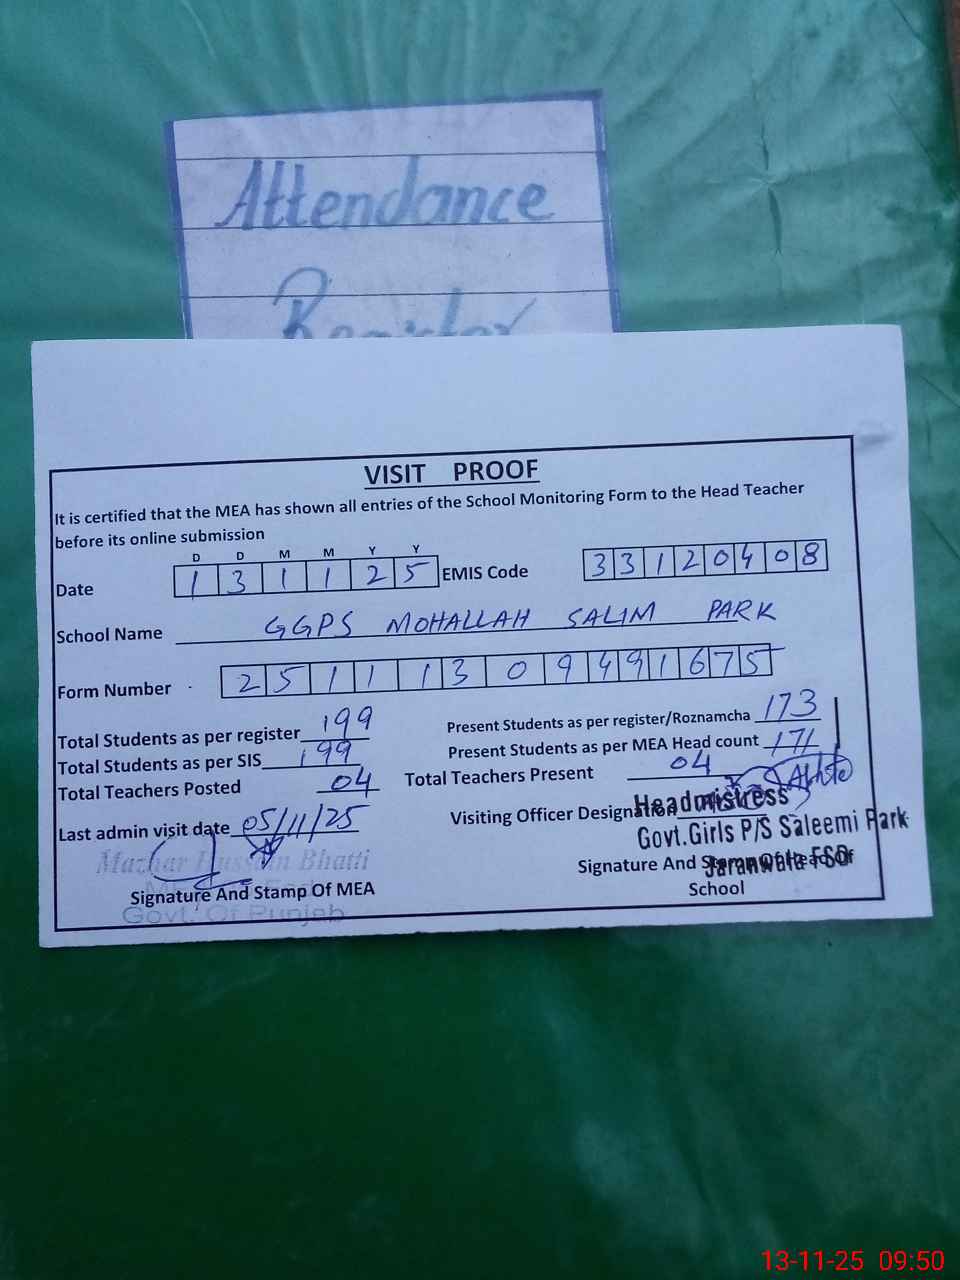 Attendance
Register
VISIT PROOF
It is certified that the MEA has shown all entries of the School Monitoring Form to the Head Teacher
before its online submission
D D M M Y Y
Date 1 3 1 1 2 5 EMIS Code 3 3 1 2 0 4 0 8
School Name GGPS MOHALLAH SALIM PARK
Form Number 2 5 1 1 1 3 0 9 4 9 1 6 7 5
Total Students as per register 199 Present Students as per register/Roznamcha 173
Total Students as per SIS 199 Present Students as per MEA Head count 171
Total Teachers Posted 04 Total Teachers Present 04
Last admin visit date 05/11/25 Visiting Officer Designation
Headmistress
Govt.Girls P/S Saleemi Park
Jaranwala FSD
Mazhar Hussain Bhatti
Signature And Stamp Of MEA Signature And Stamp Of Head Of
School
Govt. Of Punjab
13-11-25 09:50